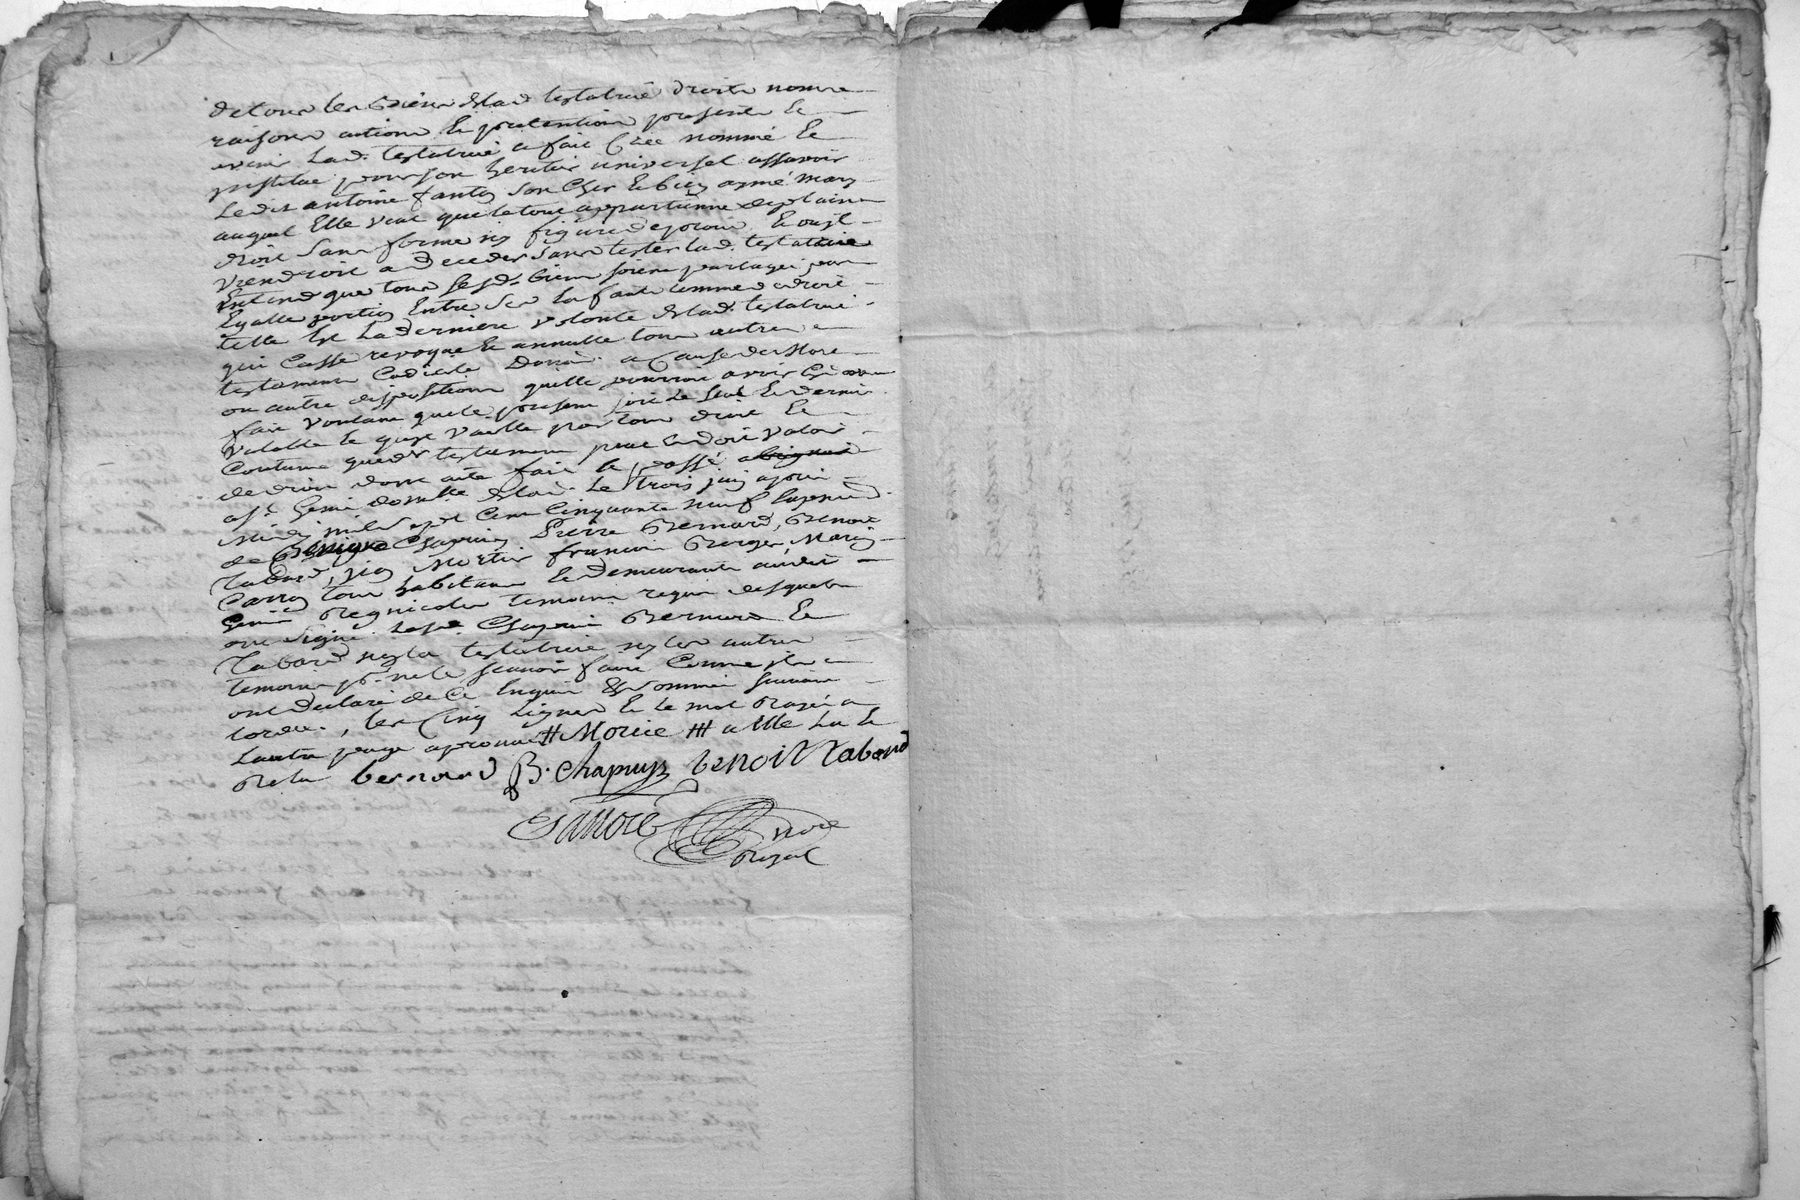 de tous les Biens de lad. testatrice droits noms
raisons actions Et pretentions presents Et
avenir Lad. testatrice a fait Créé nommé Et
institué pour son heritier universel assavoir
Ledit antoine fanton son Cher Et bien aymé mary
auquel Elle veut que le tout appartienne de plain
droit sans forme ny figure de procès Et ou il
viendroit a deceder sans tester lad. testatrice
Entend que tous sesd. biens soient partagés par
Egalle portion Entre ses Enfants comme a droit
telle Est La derniere volonté de lad. testatrice
qui Casse revoque Et annulle tous autres
testaments Codicils Donnâ. a Cause de Mort
ou autre dispositions quelle pourroit avoir Cy
fait voulant que le present soit Le seul Et dernier
valable Et quil vaille par tous droit Et
Coutume que dt testament peut Et doit valoir
de droit dont acte fait Et passé
a St Genis domille de lad. Le trois juin apres
Midy mil sept Cent Cinquante neuf En presence
de Benigne Chapuis Pierre Bernard, Benoit
Tabard, Mortier francois Berger Marin
Carron tous habitans Et demeurants aud.
Genis Regnicoles temoins requis desquels
ont signé Lesd. Chapuis Bernard Et
Tabard ny la testatrice ny les autres
temoins pr. ne le scavoir faire Comme ils
ont declaré de Ce Enquis Et Sommés suivant
lord.e, les Cinq Lignes Et Le mot Rayés a
Lautre page aprouvé # Morice ### a Elle Lu Et
Relu bernard B. Chapuys benoit Tabard
Sanore nore
Royal